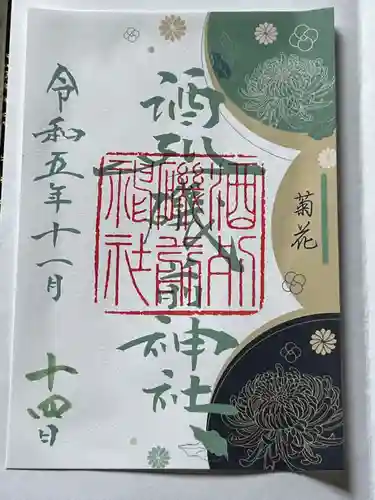 菊花
酒列磯前神社
酒列
磯前
神社
令和五年十一月
十四日